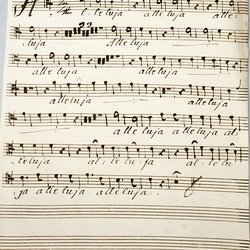 A lleluja alleluja alle:
luja Alleluja
alleluja alleluja
alleluja alleluja
alleluja alleluja al:
leluja al: le lu: ja al: le lu
ja alleluja alleluja.